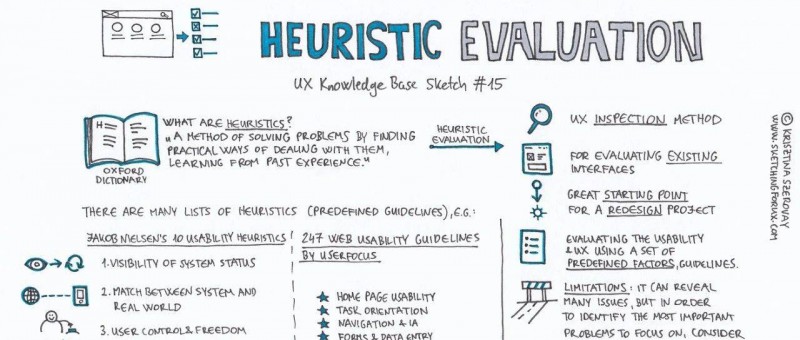 HEURISTIC EVALUATION
UX Knowledge Base Sketch #15
WHAT ARE HEURISTICS?
"A METHOD OF SOLVING PROBLEMS BY FINDING
PRACTICAL WAYS OF DEALING WITH THEM,
LEARNING FROM PAST EXPERIENCE."
H
OXFORD
DICTIONARY
HEURISTIC
EVALUATION
UX INSPECTION METHOD
FOR EVALUATING EXISTING
INTERFACES
GREAT STARTING POINT
FOR A REDESIGN PROJECT
EVALUATING THE USABILITY
& UX USING A SET OF
PREDEFINED FACTORS, GUIDELINES.
LIMITATIONS: IT CAN REVEAL
MANY ISSUES, BUT IN ORDER
TO IDENTIFY THE MOST IMPORTANT
PROBLEMS TO FOCUS ON, CONSIDER
THERE ARE MANY LISTS OF HEURISTICS (PREDEFINED GUIDELINES), E.G.:
JAKOB NIELSEN'S 10 USABILITY HEURISTICS
1. VISIBILITY OF SYSTEM STATUS
2. MATCH BETWEEN SYSTEM AND
REAL WORLD
3. USER CONTROL & FREEDOM
247 WEB USABILITY GUIDELINES
BY USERFOCUS
HOME PAGE USABILITY
TASK ORIENTATION
NAVIGATION & IA
FORMS & DATA ENTRY
© KRISZTINA SZEROVAY
WWW.SKETCHINGFORUX.COM